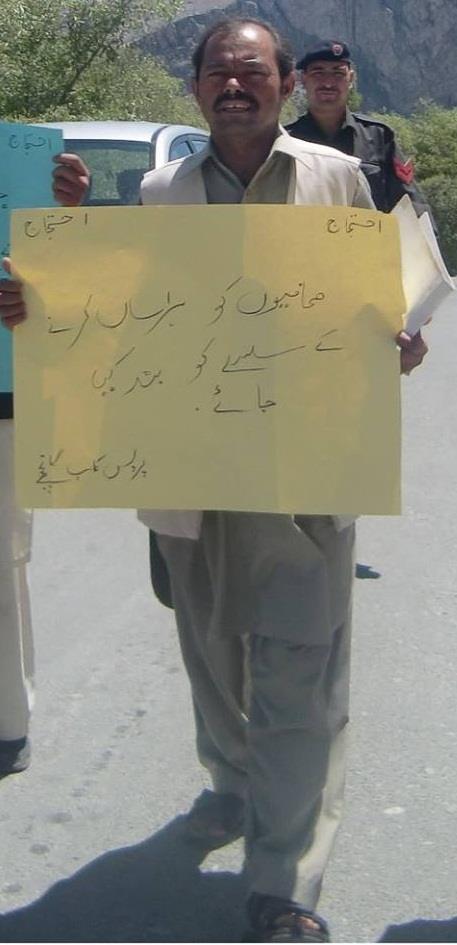 احتجاج
احتجاج
صحافیوں کو ہراساں کرنے
کے سلسلے کو بند کیا
جائے.
پریس کلب گانچھے
احتجاج